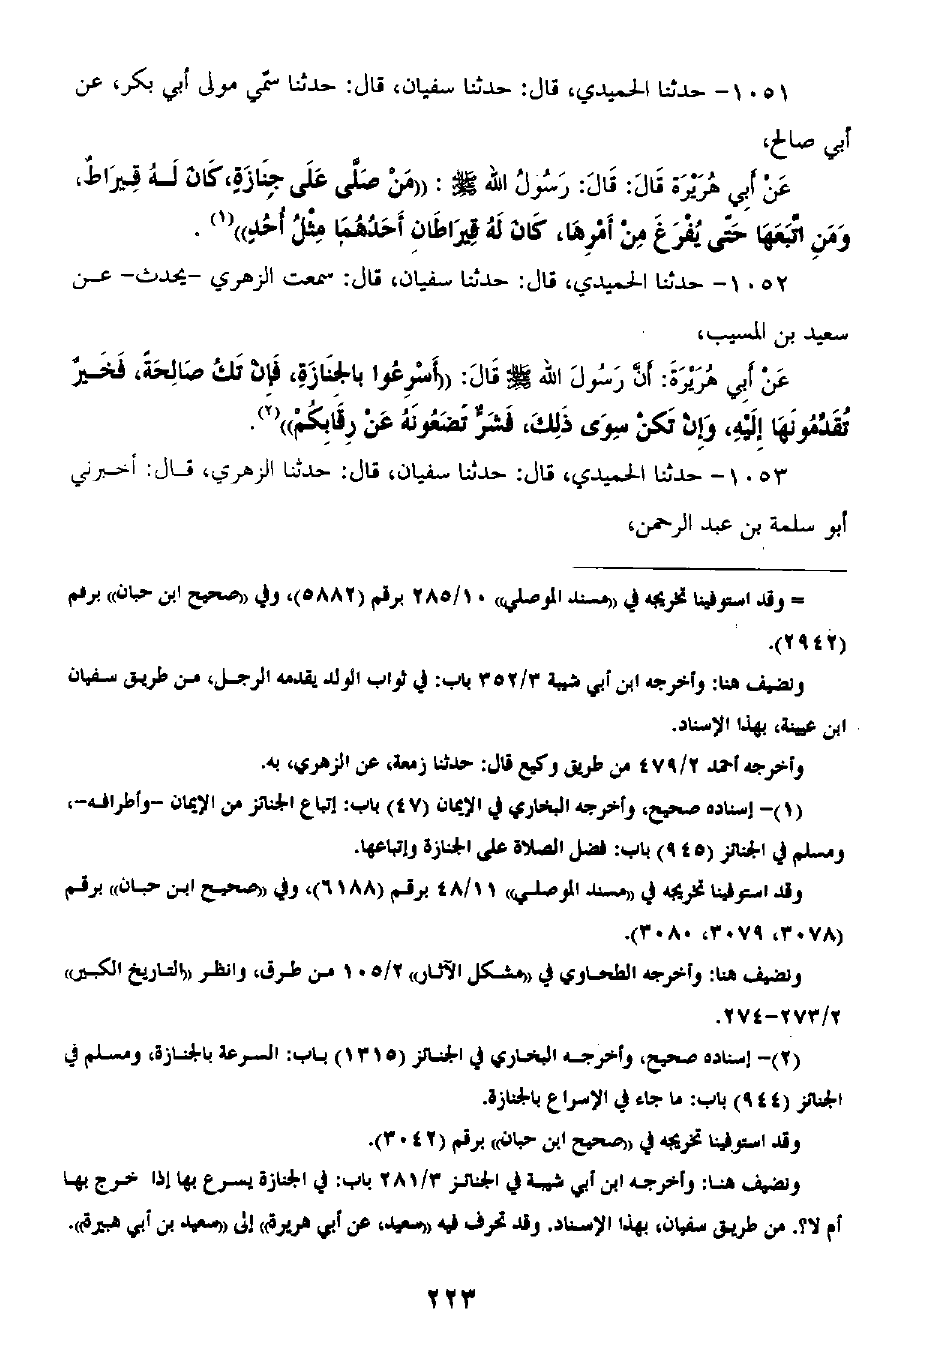 ١٠٥١- حدثنا الحميدي، قال: حدثنا سفيان، قال: حدثنا سمّي مولى أبي بكر، عن
أبي صالح،
عَنْ أَبِي هُرَيْرَةَ قَالَ: قَالَ: رَسُولُ الله ﷺ : ((مَنْ صَلَّى عَلَى جِنَازَةٍ، كَانَ لَـهُ قِيرَاطٌ،
وَمَنِ اتَّبَعَهَا حَتَّى يُفْرَغَ مِنْ أَمْرِهَا، كَانَ لَهُ قِيرَاطَانِ أَحَدُهُمَا مِثْلُ أُحُدٍ))(١) .
١٠٥٢- حدثنا الحميدي، قال: حدثنا سفيان، قال: سمعت الزهري -يحدث- عـن
سعيد بن المسيب،
عَنْ أَبِي هُرَيْرَةَ: أَنَّ رَسُولَ الله ﷺ قَالَ: ((أَسْرِعُوا بِالجَنَازَةِ، فَإِنْ تَكُ صَالِحَةً، فَخَيرٌ
تُقَدِّمُونَهَا إِلَيْهِ، وَإِنْ تَكُنْ سِوَى ذَلِكَ، فَشَرٌّ تَضَعُونَهُ عَنْ رِقَابِكُمْ))(٢).
١٠٥٣- حدثنا الحميدي، قال: حدثنا سفيان، قال: حدثنا الزهري، قـال: أخـبرني
أبو سلمة بن عبد الرحمن،
= وقد استوفينا تخريجه في ((مسند الموصلي)) ٢٨٥/١٠ برقم (٥٨٨٢)، وفي ((صحيح ابن حبان)) برقم
(٢٩٤٢).
ونضيف هنا: وأخرجه ابن أبي شيبة ٣٥٢/٣ باب: في ثواب الولد يقدمه الرجـل، مـن طريـق سـفيان
ابن عيينة، بهذا الإسناد.
وأخرجه أحمد ٤٧٩/٢ من طريق وكيع قال: حدثنا زمعة، عن الزهري، به.
(١)- إسناده صحيح، وأخرجه البخاري في الإيمان (٤٧) باب: إتباع الجنائز من الإيمان -وأطرافـه-،
ومسلم في الجنائز (٩٤٥) باب: فضل الصلاة على الجنازة وإتباعها.
وقد استوفينا تخريجه في ((مسند الموصلـي)) ٤٨/١١ برقـم (٦١٨٨)، وفي ((صحيـح ابـن حبـان)) برقـم
(٣٠٧٨، ٣٠٧٩، ٣٠٨٠).
ونضيف هنا: وأخرجه الطحاوي في ((مشكل الآثار)) ١٠٥/٢ من طرق، وانظر ((التاريخ الكبير))
٢٧٣/٢-٢٧٤.
(٢)- إسناده صحيح، وأخرجـه البخـاري في الجنائز (١٣١٥) بـاب: السرعة بالجنازة، ومسـلم في
الجنائز (٩٤٤) باب: ما جاء في الإسراع بالجنازة.
وقد استوفينا تخريجه في ((صحيح ابن حبان)) برقم (٣٠٤٢).
ونضيف هنـا: وأخرجـه ابن أبي شيبة في الجنائـز ٢٨١/٣ باب: في الجنازة يسرع بها إذا خـرج بهـا
أم لا؟. من طريق سفيان، بهذا الإسناد. وقد تحرف فيه ((سعيد، عن أبي هريرة)) إلى ((سعيد بن أبي هبيرة)).
٢٢٣